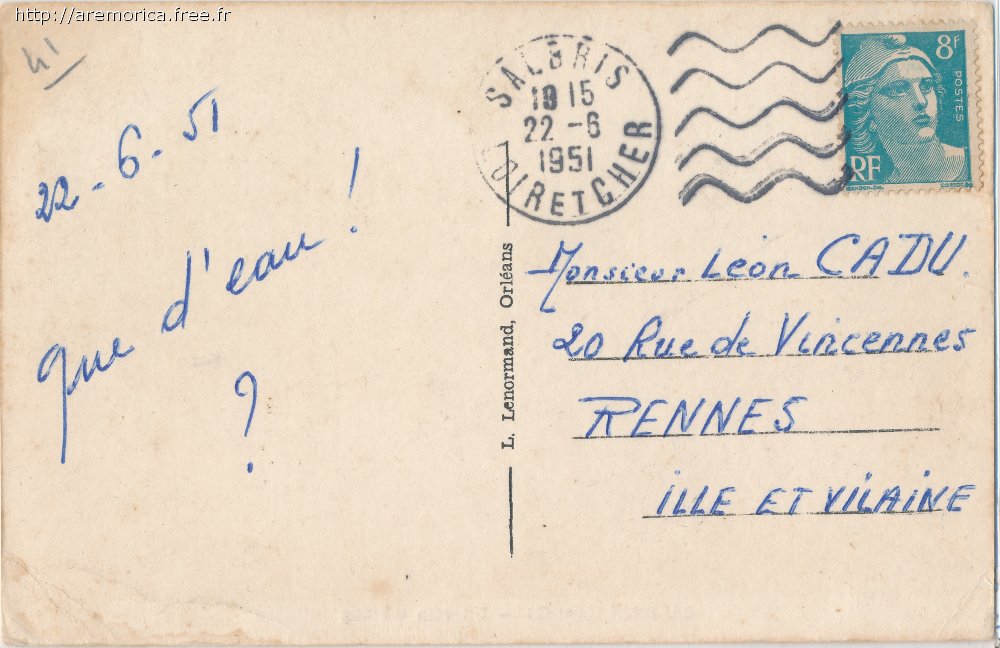 http://aremorica.free.fr
41
22-6-51
que d'eau!
?
SALBRIS
19 15
22 -6
1951
LOIR ET CHER
8F
POSTES
RF
GANDON.DEL.
L. Lenormand, Orléans
Monsieur Léon CADU.
20 Rue de Vincennes
RENNES
ILLE ET VILAINE